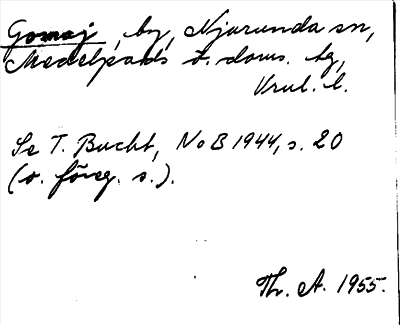 Gomaj, by, Njurunda sn,
Medelpads t. doms. tg,
Vrnl. l.
Se T. Bucht, NoB 1944, s. 20
(o. föreg. s.).
Th. A. 1955.